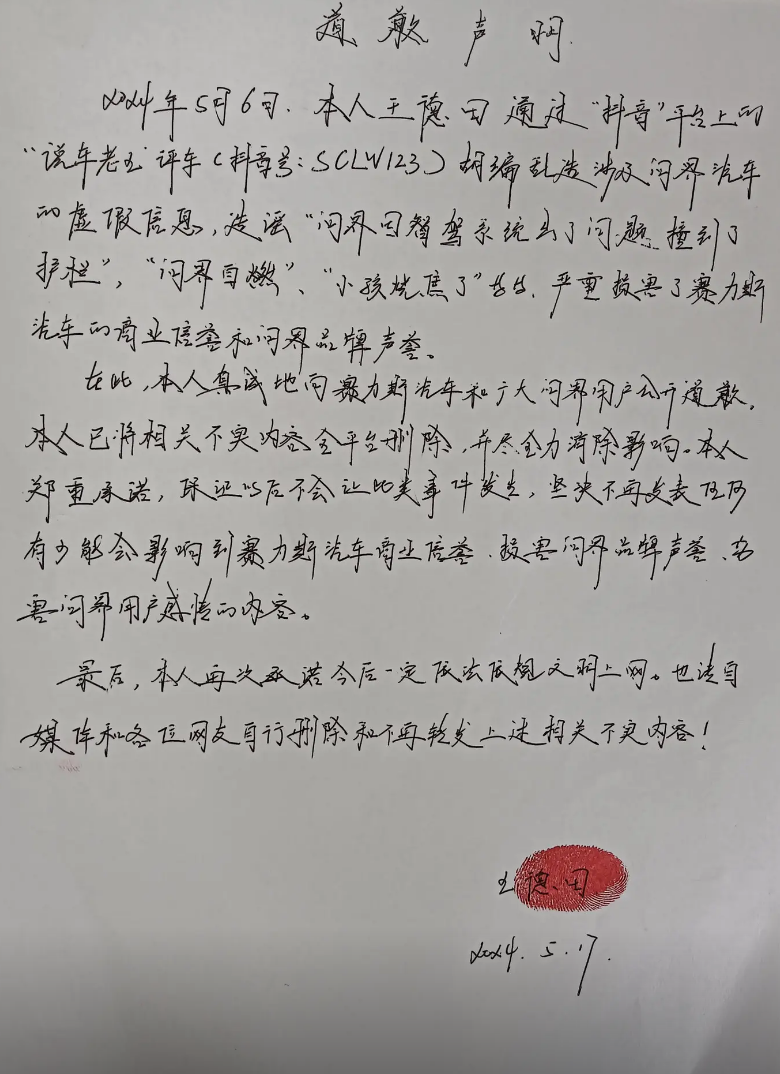 道歉声明
2024年5月6日，本人王德田通过“抖音”平台上的
“说车老王”评车（抖音号：SCLW123）胡编乱造涉及问界汽车
的虚假信息，造谣“问界因智驾系统出了问题撞到了
护栏”，“问界自燃”、“小孩烧焦了”等等，严重损害了赛力斯
汽车的商业信誉和问界品牌声誉。
在此，本人真诚地向赛力斯汽车和广大问界用户公开道歉，
本人已将相关不实内容全平台删除，并尽全力消除影响。本人
郑重承诺，保证以后不会让此类事件发生，坚决不再发表任何
有可能会影响到赛力斯汽车商业信誉、损害问界品牌声誉、伤
害问界用户感情的内容。
最后，本人再次承诺今后一定依法依规文明上网。也请自
媒体和各位网友自行删除和不再转发上述相关不实内容！
王德田
2024.5.17.